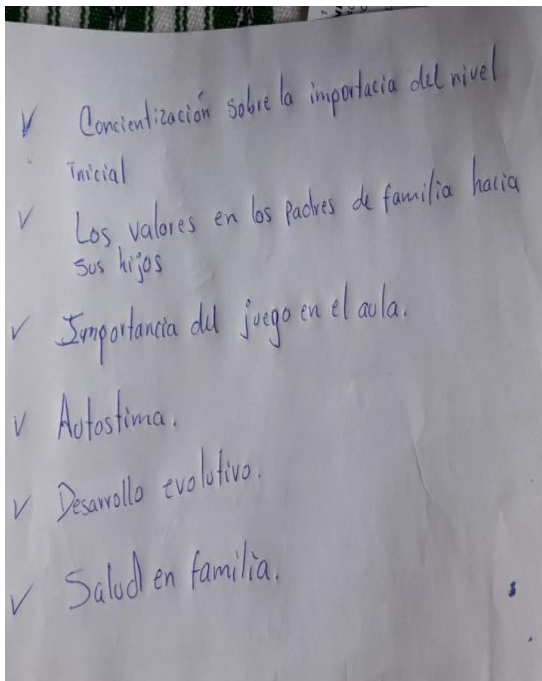 ✓ Concientización sobre la importacia del nivel
inicial
✓ Los valores en los padres de familia hacia
sus hijos
✓ Importancia del juego en el aula.
✓ Autostima.
✓ Desarrollo evolutivo.
✓ Salud en familia.